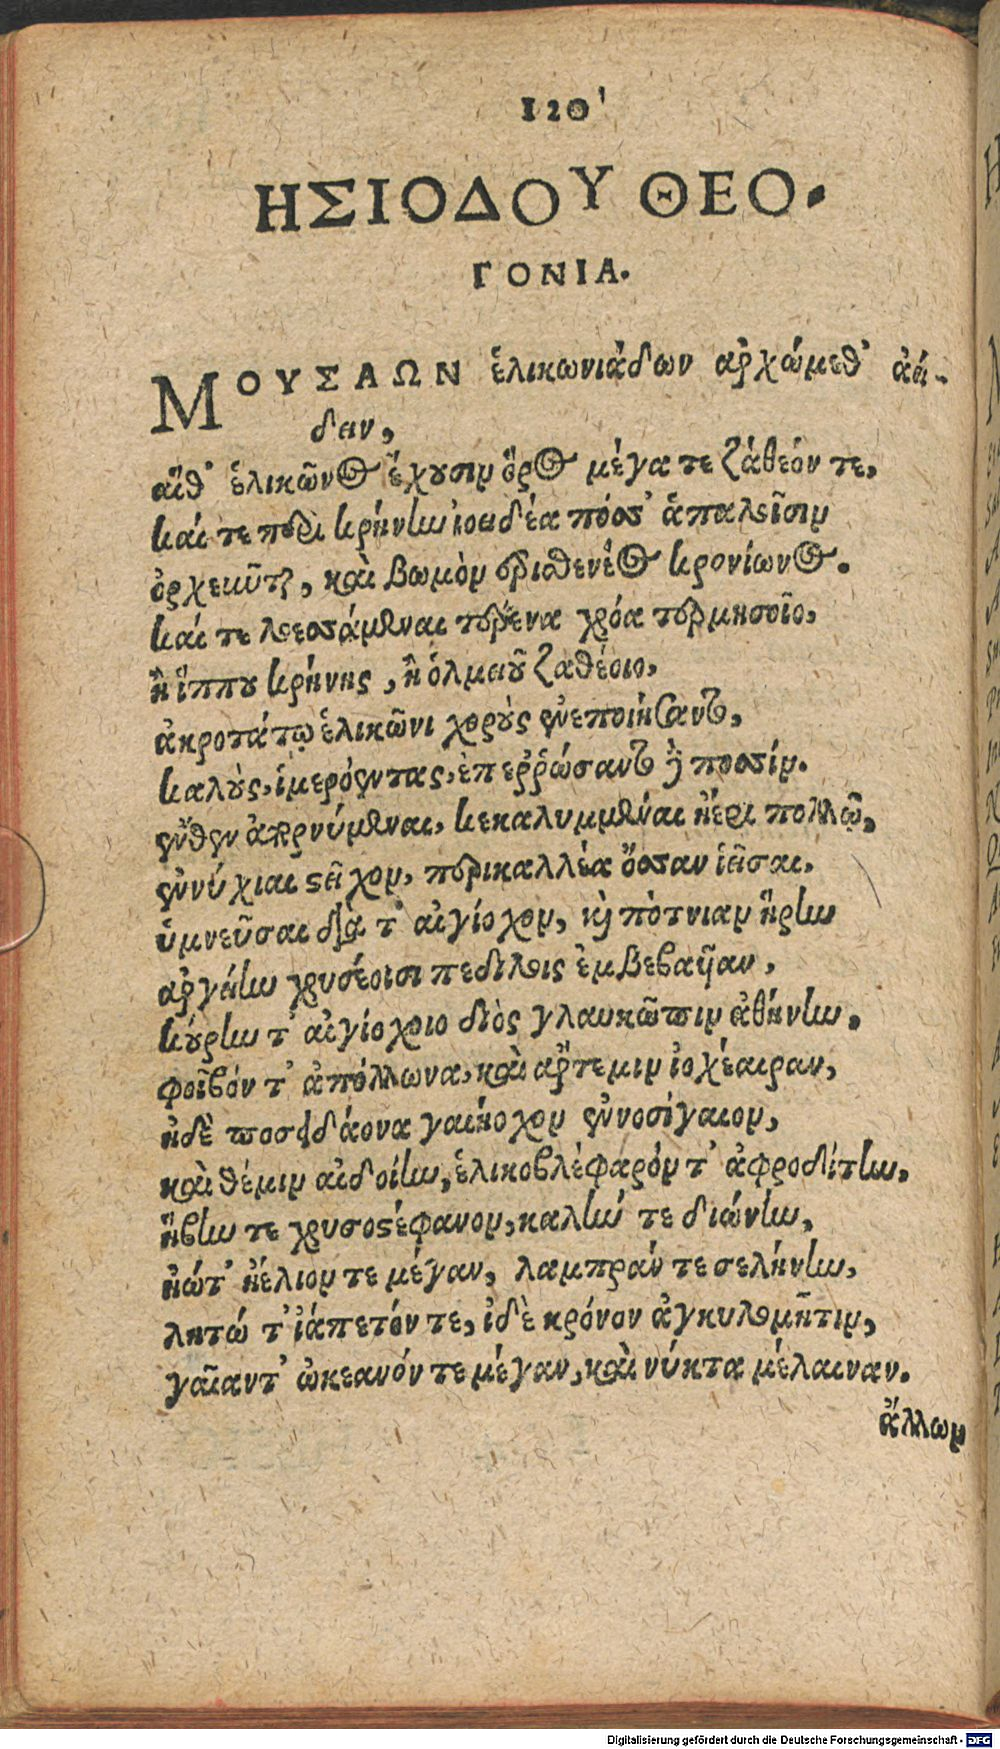 129'
ΗΣΙΟΔΟΥ ΘΕΟ-
ΓΟΝΙΑ.
ΜΟΥΣΑΩΝ ἑλικωνιάδων ἀρχώμεθ' ἀεί-
δειν,
αἵθ' ἑλικῶνος ἔχουσιν ὄρος μέγα τε ζάθεόν τε,
καί τε περὶ κρήνην ἰοειδέα πόσσ' ἁπαλεῖσιν
ὀρχεῦνται, καὶ βωμὸν ἐρισθενέος κρονίωνος.
καί τε λοεσσάμεναι τέρενα χρόα τερμησσοῖο,
ἢ ἵππου κρήνης, ἢ ὁλμειοῦ ζαθέοιο,
ἀκροτάτῳ ἑλικῶνι χοροὺς ἐνεποιήσαντο,
καλοὺς, ἱμερόεντας, ἐπερῤῥώσαντο δὲ ποσσίν.
ἔνθεν ἀπορνύμεναι, κεκαλυμμέναι ἠέρι πολλῷ,
ἐννύχιαι στεῖχον, περικαλλέα ὄσσαν ἱεῖσαι,
ὑμνεῦσαι δία τ' αἰγίοχον, καὶ πότνιαν ἥρην
ἀργείην χρυσέοισι πεδίλοις ἐμβεβαυῖαν,
κούρην τ' αἰγιόχοιο διὸς γλαυκῶπιν ἀθήνην.
φοῖβόν τ' ἀπόλλωνα, καὶ ἄρτεμιν ἰοχέαιραν,
ἠδὲ ποσειδάονα γαιήοχον ἐννοσίγαιον,
καὶ θέμιν αἰδοίην, ἑλικοβλέφαρόν τ' ἀφροδίτην,
ἥβην τε χρυσοστέφανον, καλήν τε διώνην,
ἠώτ' ἠέλιον τε μέγαν, λαμπράν τε σελήνην,
λητώ τ' ἰάπετόν τε, ἰδὲ κρόνον ἀγκυλομῆτιν,
γαῖαντ' ὠκεανόν τε μέγαν, καὶ νύκτα μέλαιναν.
ἄλλων
Digitalisierung gefördert durch die Deutsche Forschungsgemeinschaft - DFG